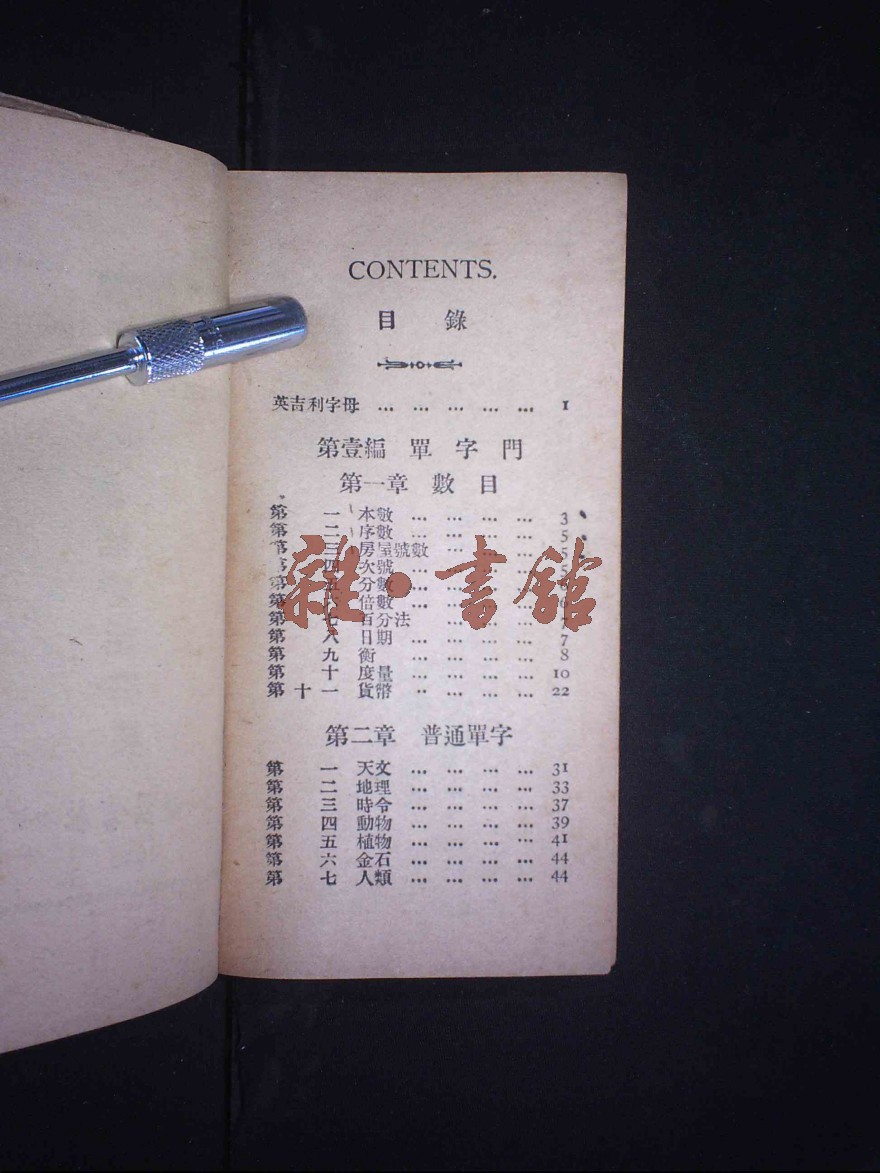 CONTENTS.
目 錄
英吉利字母 … … … … … 1
第壹編 單字門
第一章 數目
第一 本數 … … … … 3
第二 序數 … … … … 5
第三 房屋號數 … … … 5
第四 次號 … … … … 5
第五 分數 … … … …
第六 倍數 … … … …
第七 百分法 … … … 7
第八 日期 … … … … 7
第九 衡 … … … … 8
第十 度量 … … … … 10
第十一 貨幣 … … … … 22
第二章 普通單字
第一 天文 … … … … 31
第二 地理 … … … … 33
第三 時令 … … … … 37
第四 動物 … … … … 39
第五 植物 … … … … 41
第六 金石 … … … … 44
第七 人類 … … … … 44
雜·書館